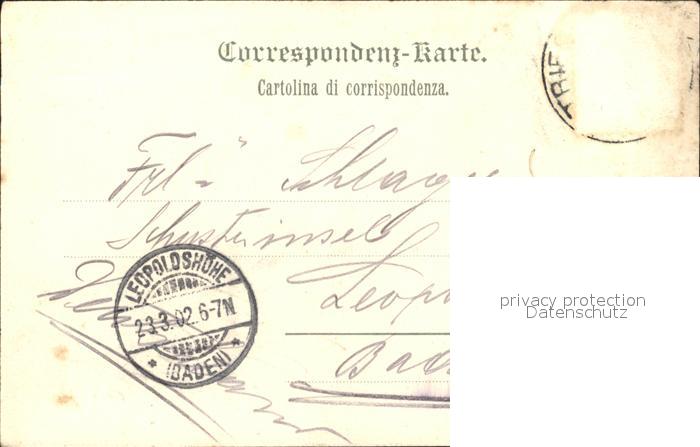 Correspondenz-Karte.
Cartolina di corrispondenza.
TRIE
Frl. Schlag
Schusterinsel
Leop
Bad
LEOPOLDSHÖHE
23.3.02.6-7N
* (BADEN) *
privacy protection
Datenschutz